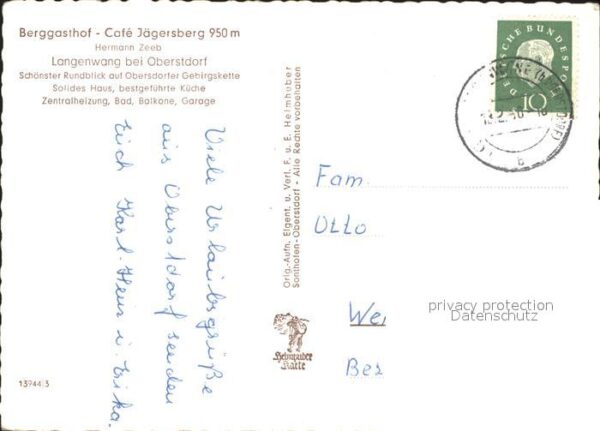 Berggasthof - Café Jägersberg 950 m
Hermann Zeeb
Langenwang bei Oberstdorf
Schönster Rundblick auf Obersdorfer Gebirgskette
Solides Haus, bestgeführte Küche
Zentralheizung, Bad, Balkone, Garage
Viele Urlaubsgrüße
aus Oberstdorf senden
Euch Karl-Heinz u. Erika.
Orig.-Aufn. Eigent. u. Verl. F. u. E. Heimhuber
Sonthofen-Oberstdorf - Alle Rechte vorbehalten
DEUTSCHE BUNDESPOST
10
b
Fam.
Otto
Wei
Bez
privacy protection
Datenschutz
Heimhuber
Karte
13944/3